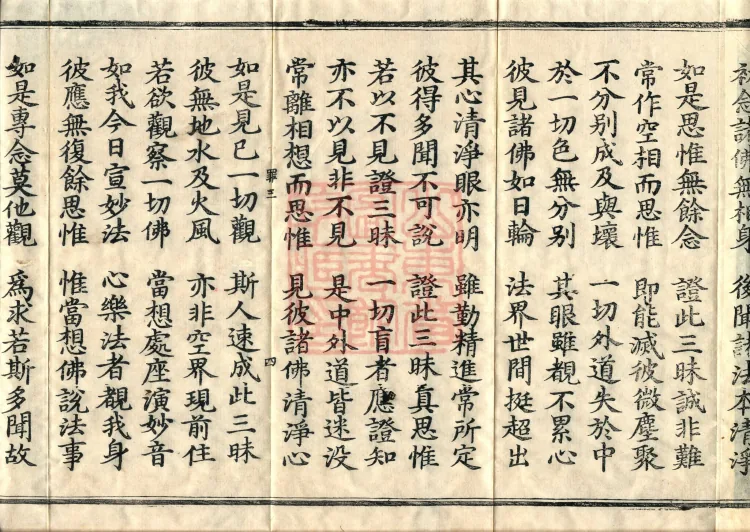 初念諸佛無相身 後聞諸法本清淨
如是思惟無餘念 證此三昧誠非難
常作空相而思惟 即能滅彼微塵聚
不分別成及與壞 一切外道失於中
於一切色無分別 其眼雖覩不累心
彼見諸佛如日輪 法界世間挺超出
其心清淨眼亦明 雖勤精進常所定
彼得多聞不可說 證此三昧真思惟
若以不見證三昧 一切盲者應證知
亦不以見非不見 是中外道皆迷没
常離相想而思惟 見彼諸佛清淨心
罪三 四
如是見已一切觀 斯人速成此三昧
彼無地水及火風 亦非空界現前住
若欲觀察一切佛 當想處座演妙音
如我今日宣妙法 心樂法者覩我身
彼應無復餘思惟 惟當想佛說法事
如是專念莫他觀 爲求若斯多聞故